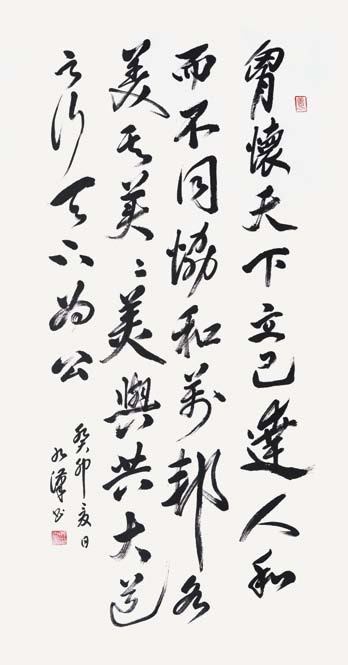 胷懷天下立己達人和
而不同協和萬邦各
美其美〻美與共大道
之行天下為公
癸卯夏日
漢书